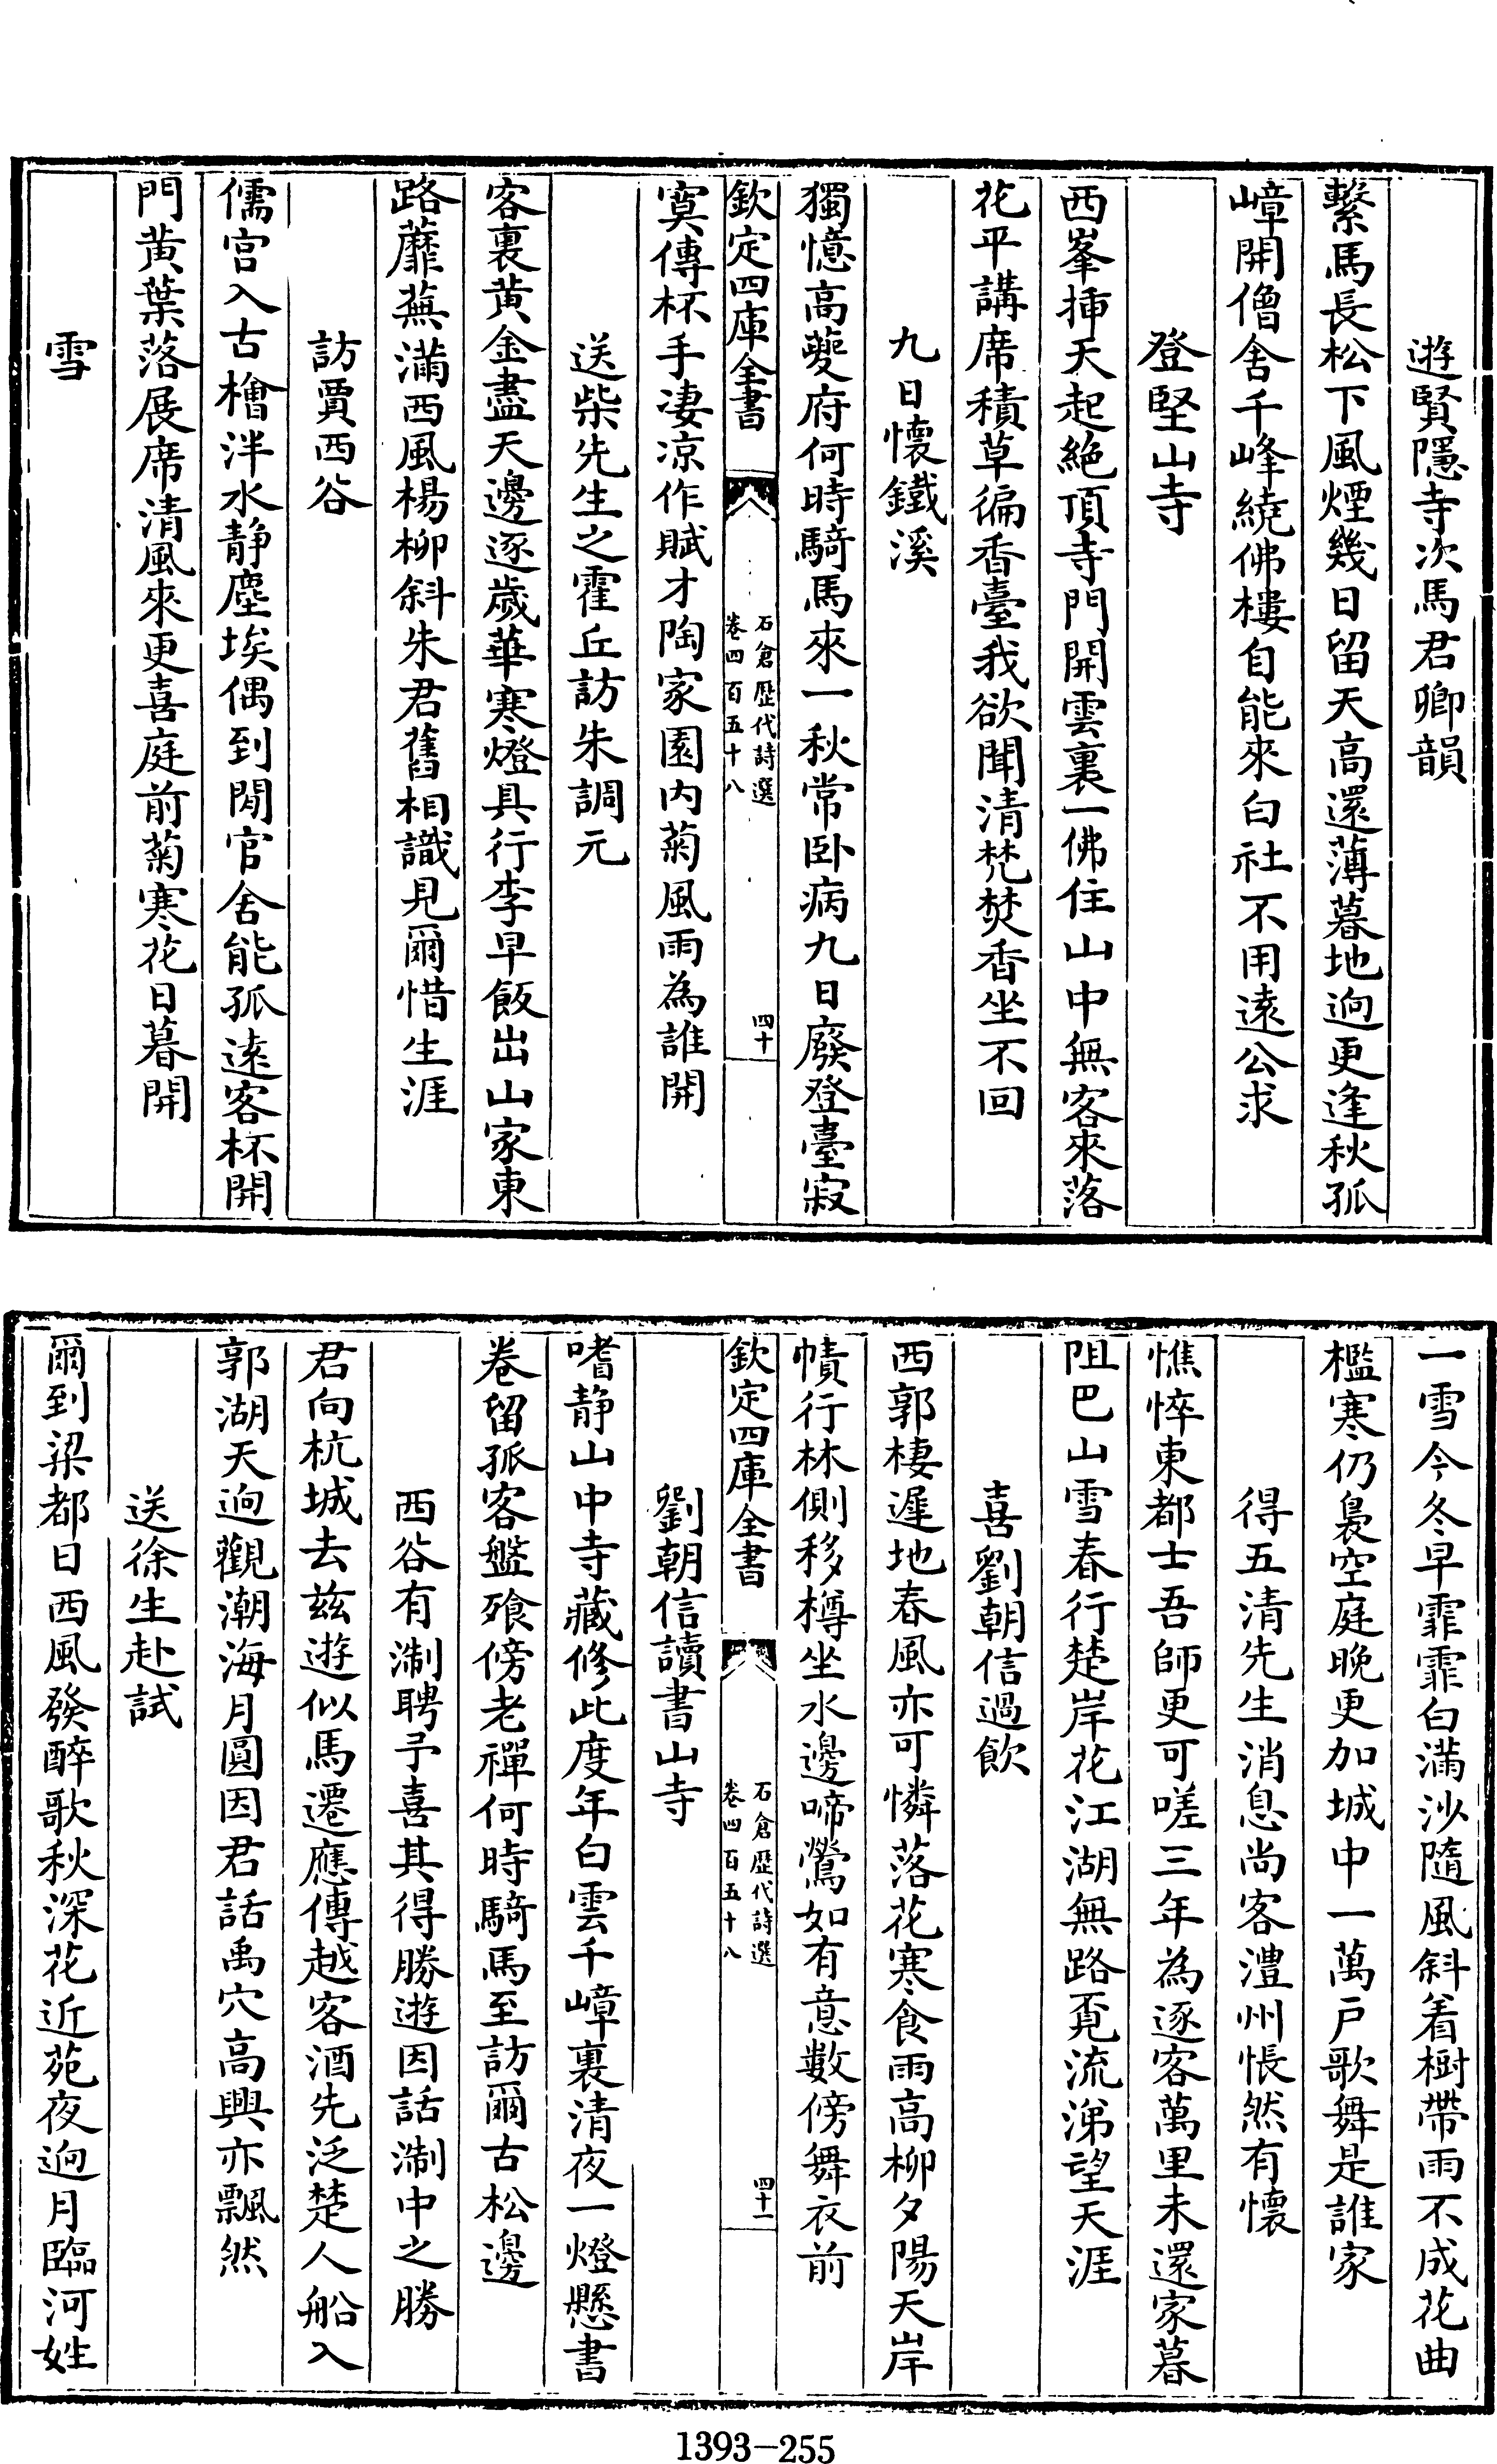 遊賢隱寺次馬君卿韻
繫馬長松下風煙幾日留天高還薄暮地逈更逢秋孤
嶂開僧舍千峰繞佛樓自能來白社不用遠公求
登堅山寺
西峯揷天起絶頂寺門開雲裏一佛住山中無客來落
花平講席積草徧香臺我欲聞清梵焚香坐不回
九日懷鐵溪
獨憶高夔府何時騎馬來一秋常卧病九日廢登臺寂
欽定四庫全書
石倉歴代詩選
卷四百五十八
四十
寞傳杯手凄凉作賦才陶家園内菊風雨為誰開
送柴先生之霍丘訪朱調元
客裏黄金盡天邊逐歲華寒燈具行李早飯出山家東
路蘼蕪滿西風楊柳斜朱君舊相識見爾惜生涯
訪賈西谷
儒宫入古檜泮水静塵埃偶到閒官舍能孤逺客杯開
門黄葉落展席清風來更喜庭前菊寒花日暮開
雪
一雪今冬早霏霏白滿沙隨風斜着樹帶雨不成花曲
檻寒仍裊空庭晚更加城中一萬戸歌舞是誰家
得五清先生消息尚客澧州悵然有懷
憔悴東都士吾師更可嗟三年為逐客萬里未還家暮
阻巴山雪春行楚岸花江湖無路覔流涕望天涯
喜劉朝信過飲
西郭棲遲地春風亦可憐落花寒食雨高柳夕陽天岸
幘行林側移樽坐水邊啼鶯如有意數傍舞衣前
欽定四庫全書
石倉歴代詩選
卷四百五十八
四十一
劉朝信讀書山寺
嗜静山中寺藏修此度年白雲千嶂裏清夜一燈懸書
卷留孤客盤飱傍老禪何時騎馬至訪爾古松邊
西谷有淛聘予喜其得勝遊因話淛中之勝
君向杭城去兹遊似馬遷應傳越客酒先泛楚人船入
郭湖天逈觀潮海月圓因君話禹穴高興亦飄然
送徐生赴試
爾到梁都日西風發醉歌秋深花近苑夜逈月臨河姓
1393-255